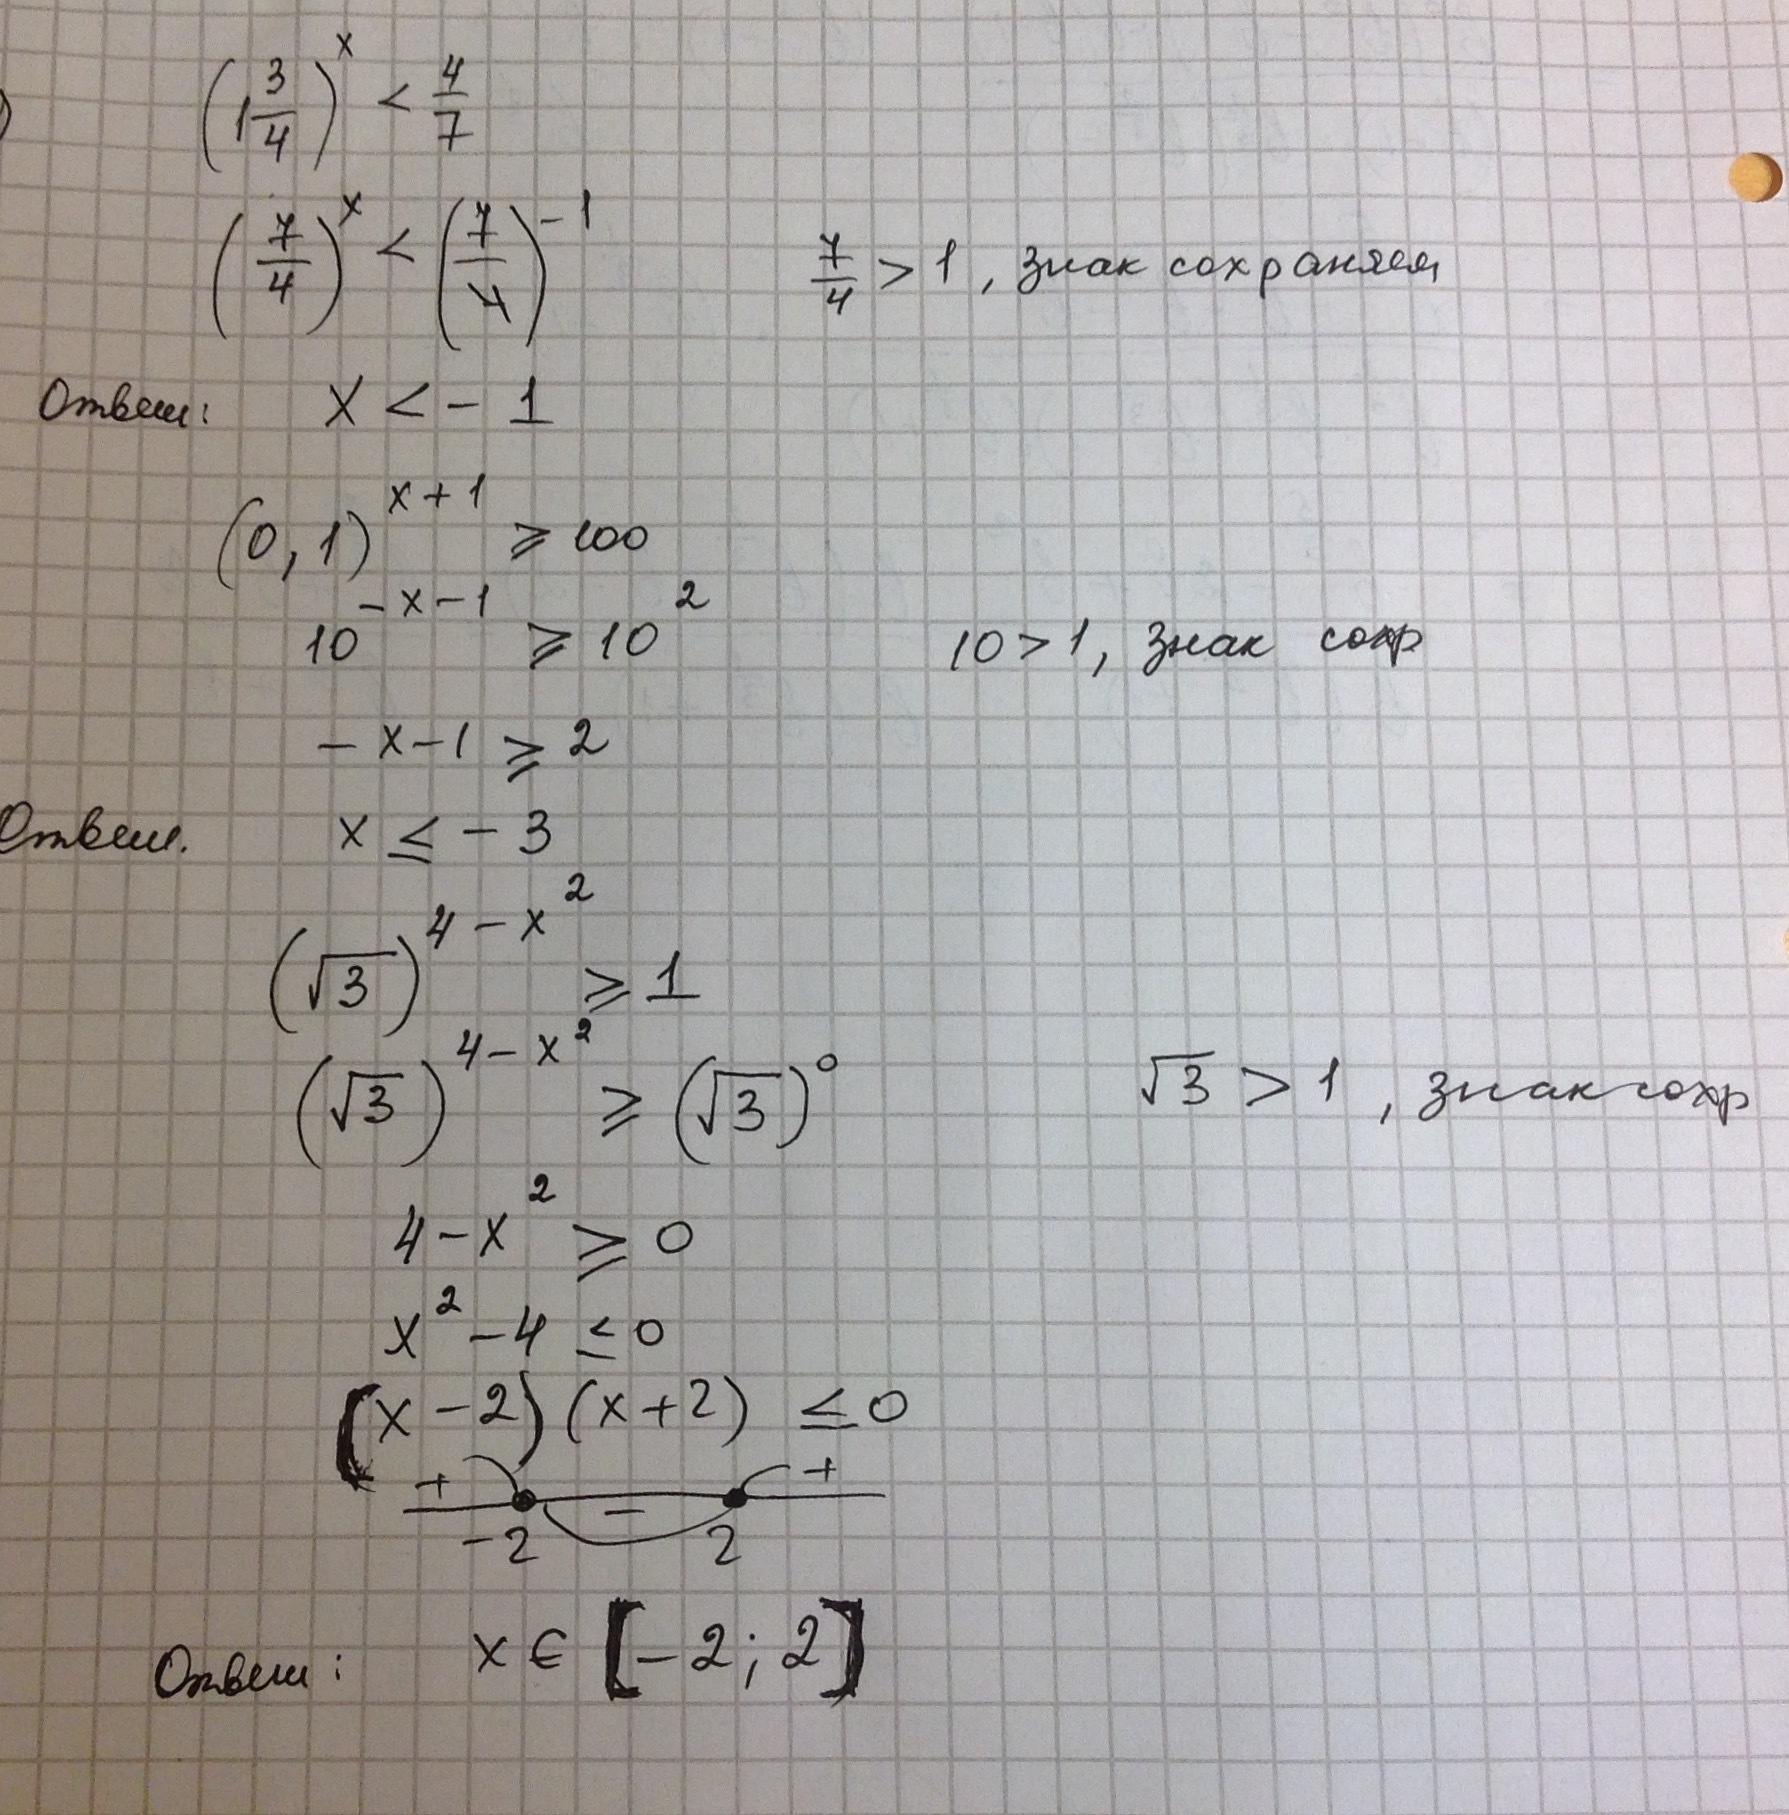 (1 3/4)^x < 4/7
(7/4)^x < (7/4)^-1 7/4 > 1, знак сохраняем
Ответ: x < -1
(0,1)^x+1 ⩾ 100
10^-x-1 ⩾ 10^2 10 > 1, знак сохр
-x-1 ⩾ 2
Ответ. x ≤ -3
(√3)^4-x^2 ⩾ 1
(√3)^4-x^2 ⩾ (√3)^0 √3 > 1, знак сохр
4-x^2 ⩾ 0
x^2-4 ≤ 0
(x-2)(x+2) ≤ 0
+ - +
-2 2
Ответ: x ∈ [-2; 2]